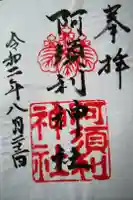 奉拝
阿須利神社
阿須利
神社
令和二年八月二十三日